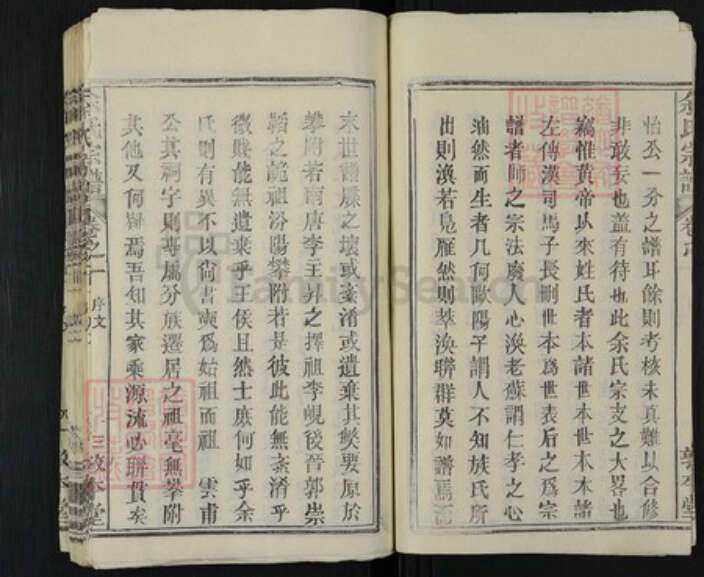 余氏宗譜
敦本堂
怡公一分之譜耳餘則考核未真難以合修
非敢妄也蓋有待也此余氏宗支之大畧也
竊惟黃帝以來姓氏者本諸世本世本本諸
左傳漢司馬子長刪世本為世表后之為宗
譜者師之宗法廢人心渙老蘇謂仁孝之心
油然而生者几何歐陽子謂人不知族氏所
出則渙若鳧雁然則萃渙聯群莫如譜焉
末世譜牒之壞或紊淆或遺棄其獘要原於
攀附若南唐李王昇之擇祖李峴後晉郭崇
韜之詭祖汾陽攀附若是彼此能無紊淆乎
微賤能無遺棄乎王侯且然士庶何如乎余
氏則有異不以尚書爽為始祖而祖 雲甫
公其祠宇則專屬分族遷居之祖毫無攀附
其他又何疑焉吾知其家乘源流必聯貫矣
序文
FamilySearch